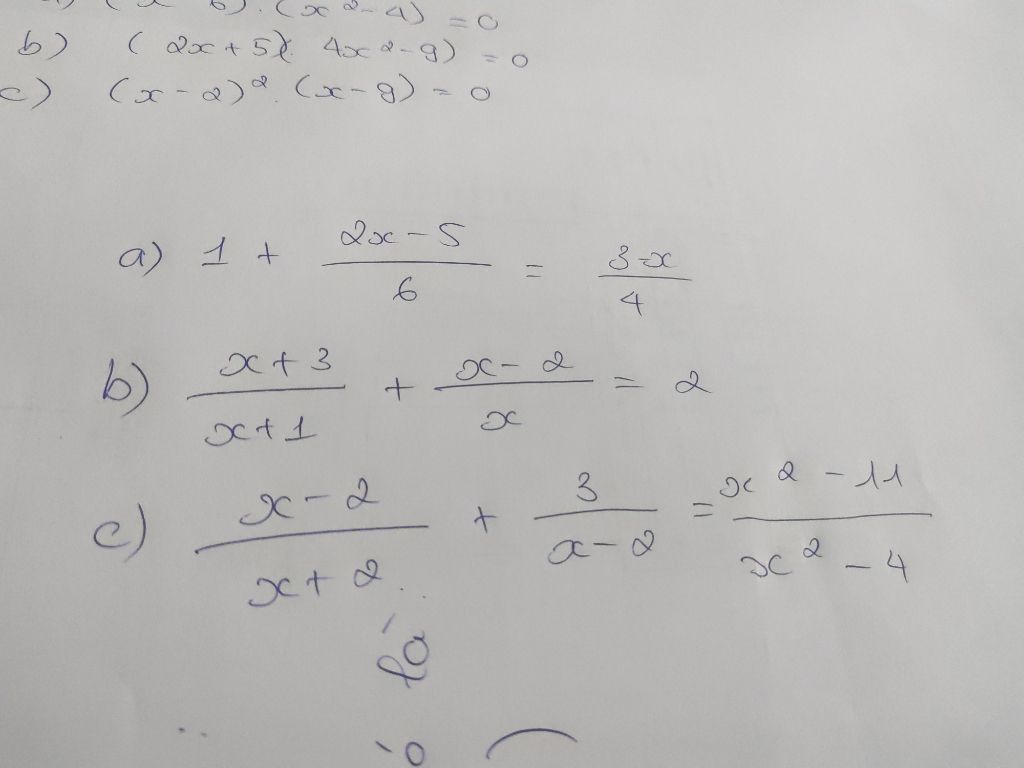 6) . (x² - 4) = 0
b) (2x + 5)( 4x² - 9) = 0
c) (x - 2)² . (x - 9) = 0
a) 1 + (2x - 5)/6 = (3 - x)/4
b) (x + 3)/(x + 1) + (x - 2)/x = 2
c) (x - 2)/(x + 2) + 3/(x - 2) = (x² - 11)/(x² - 4)